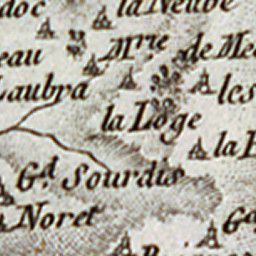 doc
la Neuve
eau
M.rie de Me
Laubra
les
la Loge
la B
G.d Sourdis
Noret
G.d